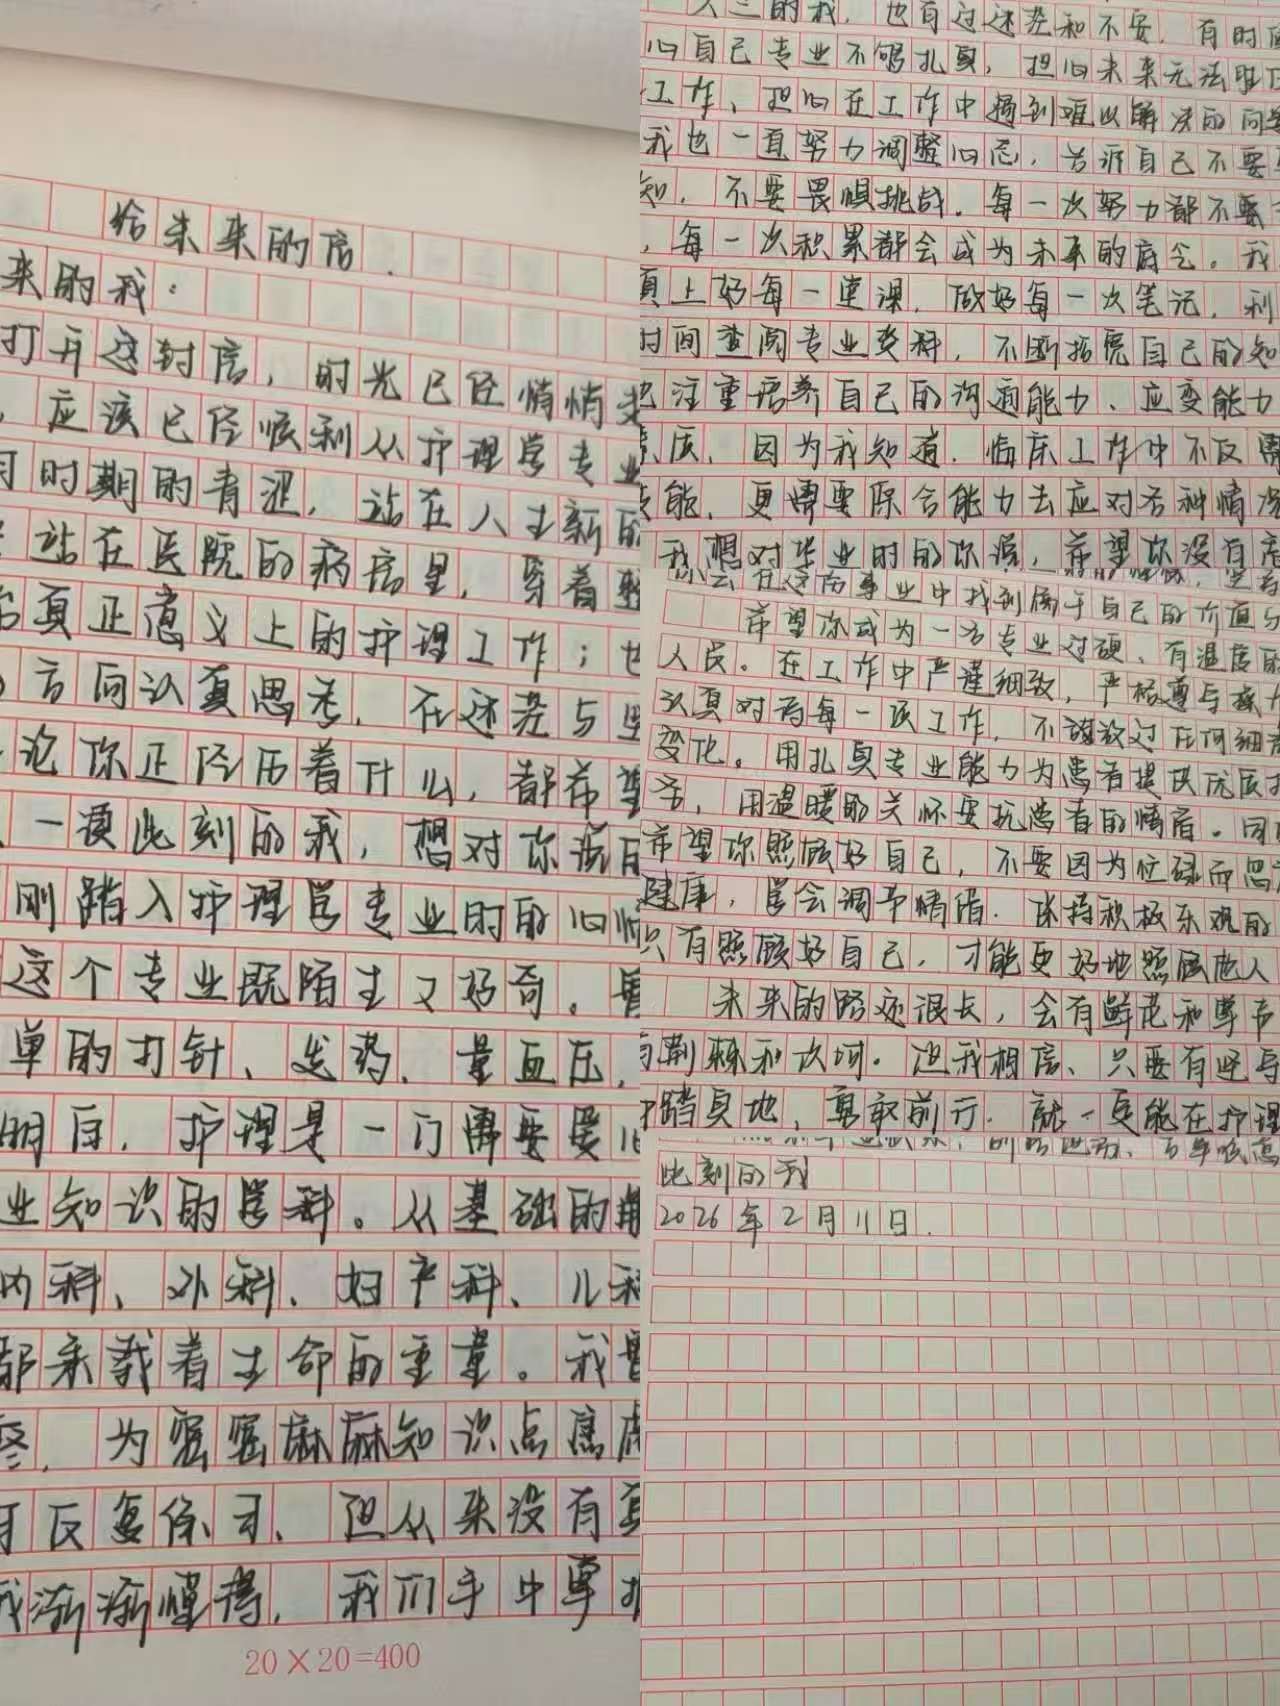 给未来的信
来的我：
打开这封信，时光已经悄悄走
，应该已经顺利从护理学专业
时期的青涩，站在人生新的
站在医院的病房里，穿着整
真正意义上的护理工作；也
方向认真思考，在迷茫与坚
论你正经历着什么，都希望
，一读此刻的我，想对你说的
刚踏入护理学专业时的心情
这个专业既陌生又好奇。曾
单的打针、发药、量血压，
明白，护理是一门需要爱心
业知识的学科。从基础的
内科、外科、妇产科、儿科
都承载着生命的重量。我曾
，为密密麻麻知识点焦虑
反复练习、但从来没有真
我渐渐懂得，我们手中掌握
20×20=400
大三的我，也有过迷茫和不安，有时
心自己专业不够扎实，担心未来无法胜任
工作、担心在工作中遇到难以解决的问题
我也一直努力调整心态，告诉自己不要
知，不要畏惧挑战。每一次努力都不要
，每一次积累都会成为未来的底气。我
真上好每一速课，做好每一次笔记，利
时间查阅专业资料，不断拓宽自己的知
也注重培养自己的沟通能力、应变能力
质，因为我知道，临床工作中不仅需
技能，更需要综合能力去应对各种情况
我想对毕业时的你说，希望你没有
在这份事业中找到属于自己的价值与
希望你成为一名专业过硬、有温度的
人民。在工作中严谨细致，严格遵守
认真对待每一项工作，不放过任何细
变化。用扎实专业能力为患者提供优质
务，用温暖的关怀安抚患者的情绪。同
希望你照顾好自己，不要因为忙碌而忽
健康，学会调节情绪，保持积极乐观的
只有照顾好自己，才能更好地照顾他人
未来的路还很长，会有鲜花和掌声
有荆棘和坎坷。但我相信、只要有
踏实地，勇敢前行，就一定能在护理
此刻的我
2026年2月11日.